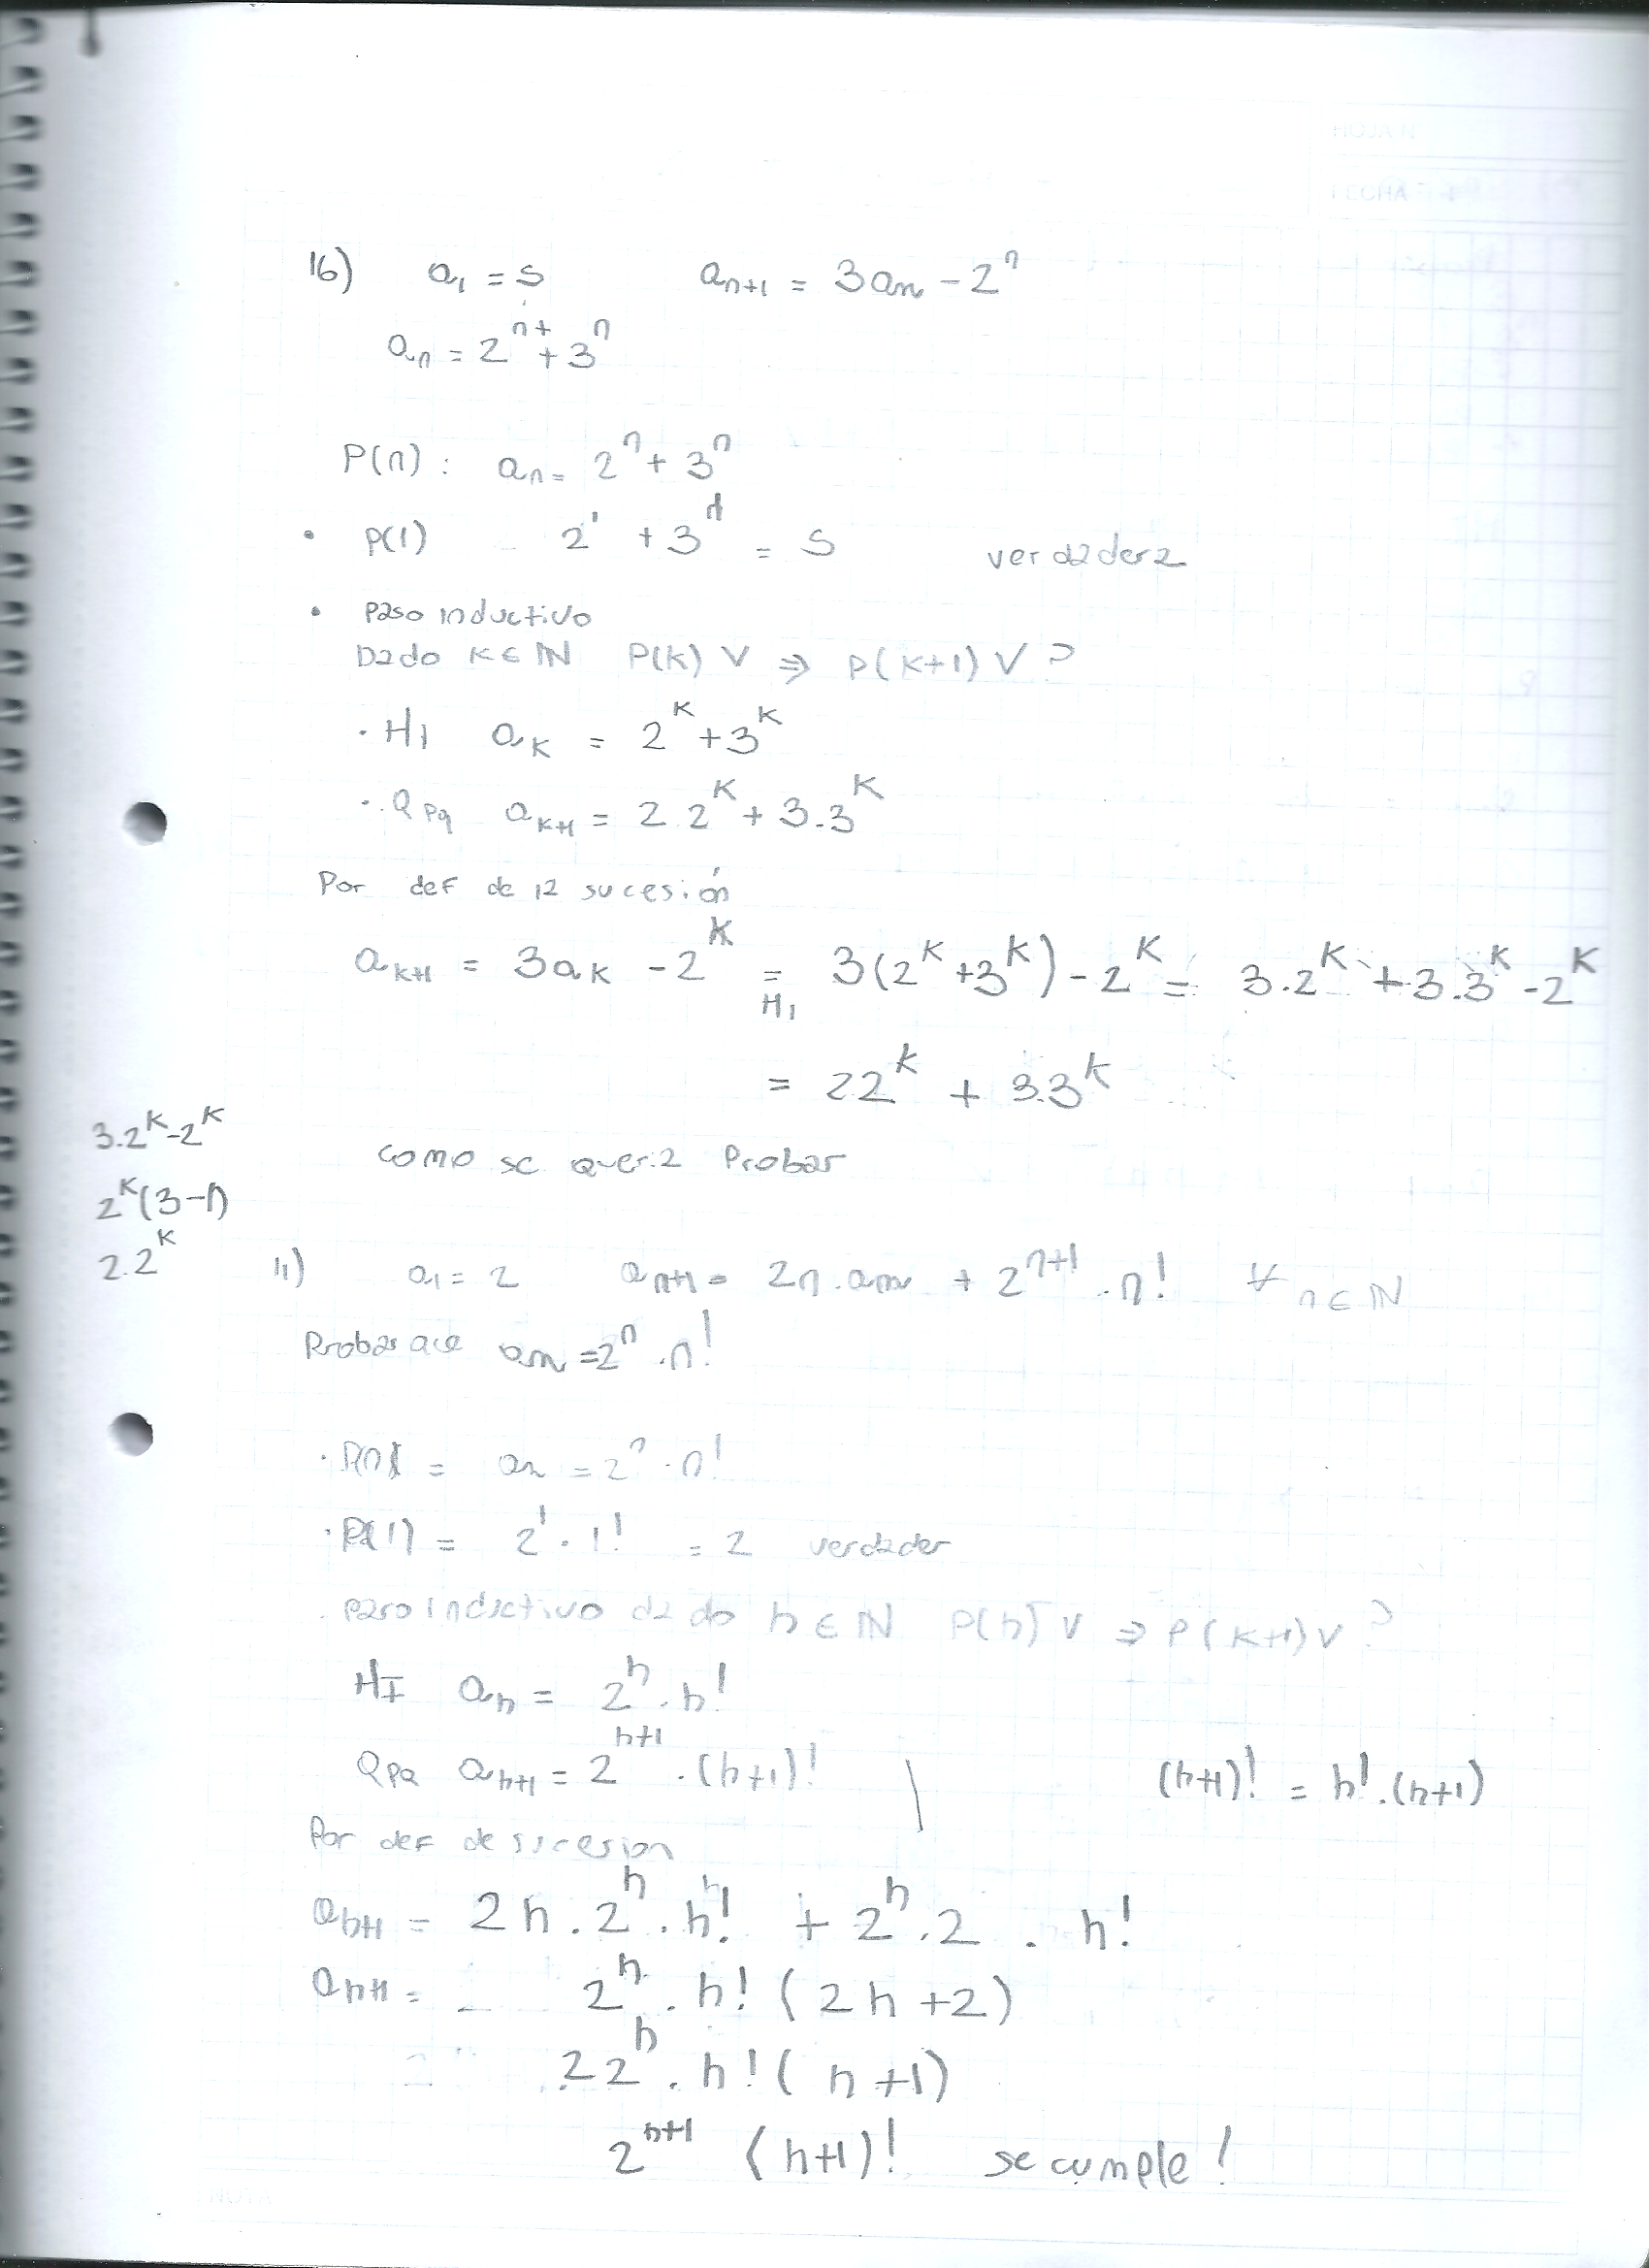 HOJA N°
FECHA
16) a₁ = 5 aₙ₊₁ = 3aₙ - 2ⁿ
aₙ = 2ⁿ⁺ + 3ⁿ
P(n) : aₙ = 2ⁿ + 3ⁿ
• P(1) 2¹ + 3¹ = 5 verdadera
• Paso inductivo
Dado K ∈ ℕ P(k) V ⇒ P(K+1) V ?
· HI aₖ = 2ᴷ + 3ᴷ
·. Qpq aₖ₊₁ = 2 2ᴷ + 3.3ᴷ
Por def de la sucesión
aₖ₊₁ = 3aₖ - 2ᴷ = 3(2ᴷ + 3ᴷ) - 2ᴷ = 3.2ᴷ + 3.3ᴷ - 2ᴷ
HI
= 2 2ᵏ + 3.3ᵏ
3.2ᴷ - 2ᴷ
como se queria Probar
2ᴷ(3-1)
2.2ᴷ
11) a₁ = 2 aₙ₊₁ = 2n.aₙ + 2ⁿ⁺¹ . n! ∀ n ∈ ℕ
Probar aₙ = 2ⁿ . n!
· P(n) = aₙ = 2ⁿ . n!
· P(1) = 2¹ . 1! = 2 verdader
. paso inductivo dado h ∈ ℕ P(h) V ⇒ P(K+1) V ?
HI aₕ = 2ʰ . h!
Qpq aₕ₊₁ = 2ʰ⁺¹ . (h+1)! (h+1)! = h! . (h+1)
Por def de sucesion
aₕ₊₁ = 2h . 2ʰ . h! + 2ʰ . 2 . h!
aₕ₊₁ = 2ʰ . h! (2h + 2)
2 2ʰ . h! (h+1)
2ʰ⁺¹ (h+1)! se cumple!